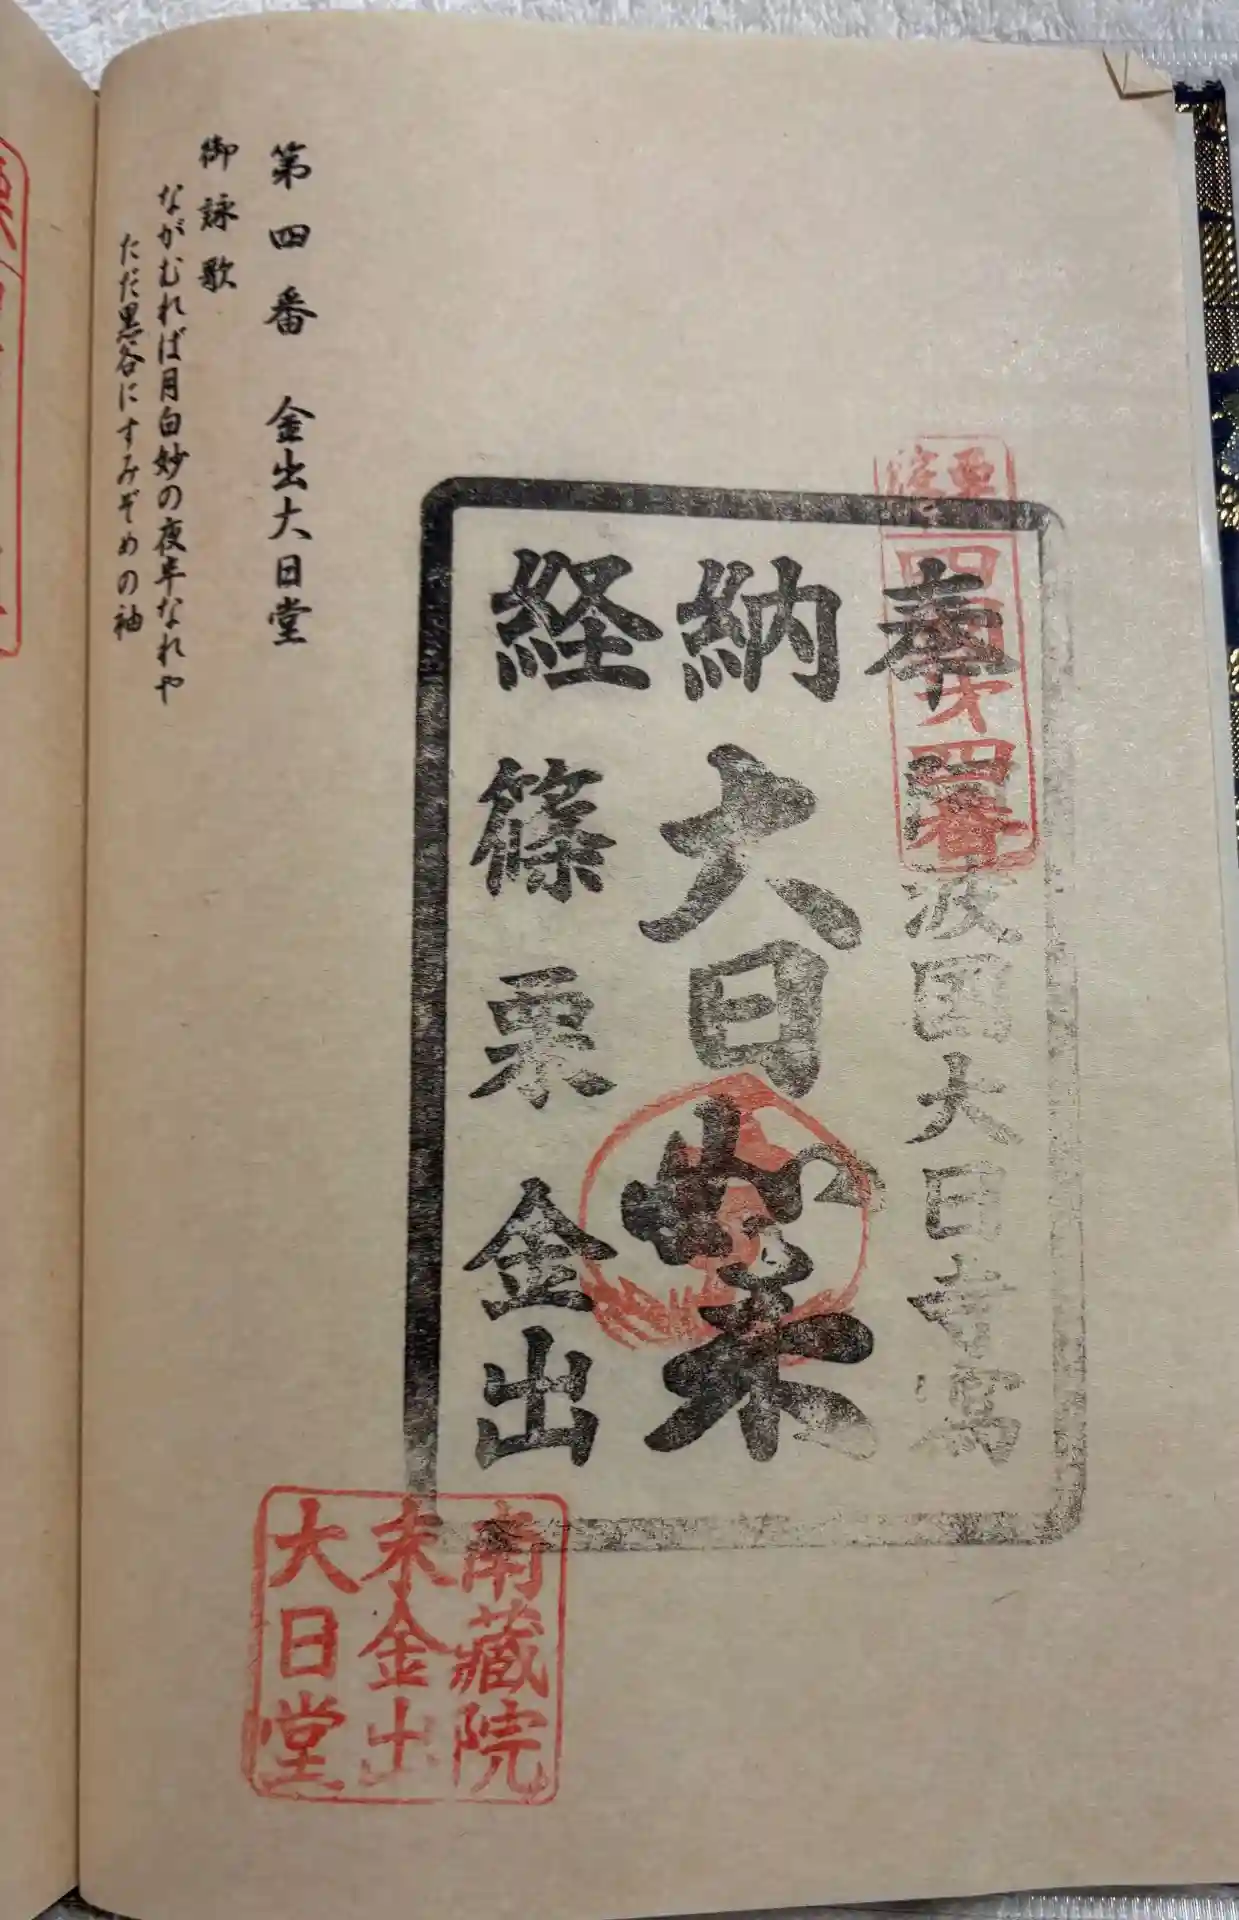 奉
波国大日寺写
納
大日如来
経
篠栗
金出
篠栗
四国才四番
第四番 金出大日堂
御詠歌
ながむれば月白妙の夜半なれや
ただ黒谷にすみぞめの袖
南蔵院
末金出
大日堂